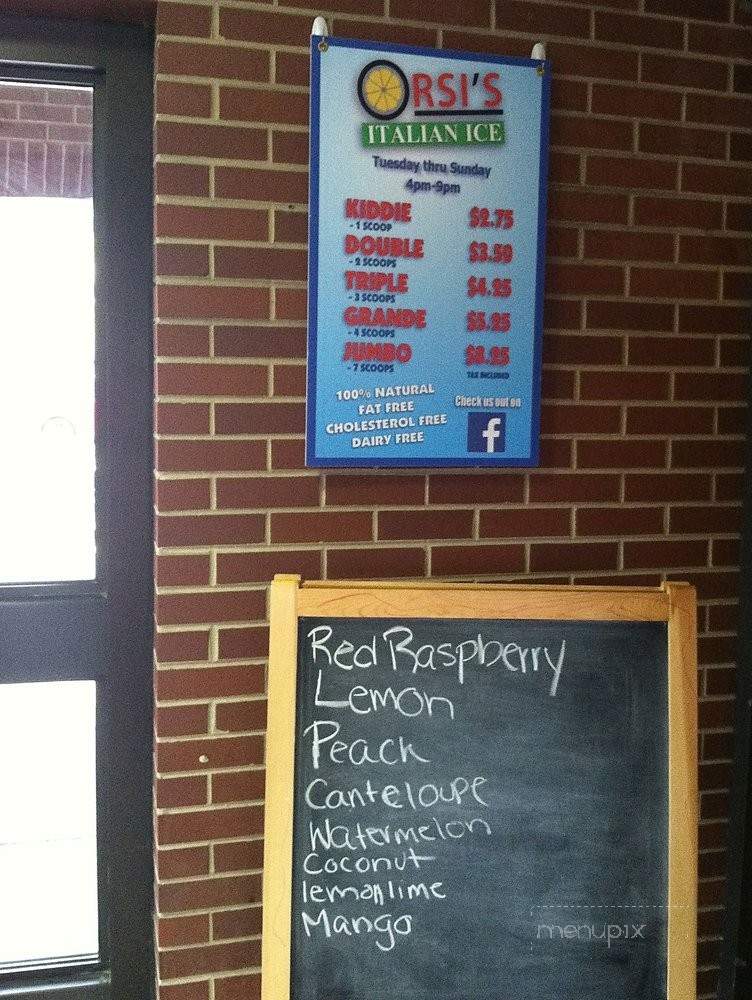 ORSI'S
ITALIAN ICE
Tuesday thru Sunday
4pm-9pm
KIDDIE $2.75
- 1 SCOOP
DOUBLE $3.50
- 2 SCOOPS
TRIPLE $4.25
- 3 SCOOPS
GRANDE $5.25
- 4 SCOOPS
JUMBO $8.25
- 7 SCOOPS TAX INCLUDED
100% NATURAL
FAT FREE
CHOLESTEROL FREE
DAIRY FREE
Check us out on
f
Red Raspberry
Lemon
Peach
Canteloupe
Watermelon
Coconut
lemon lime
Mango
menupix